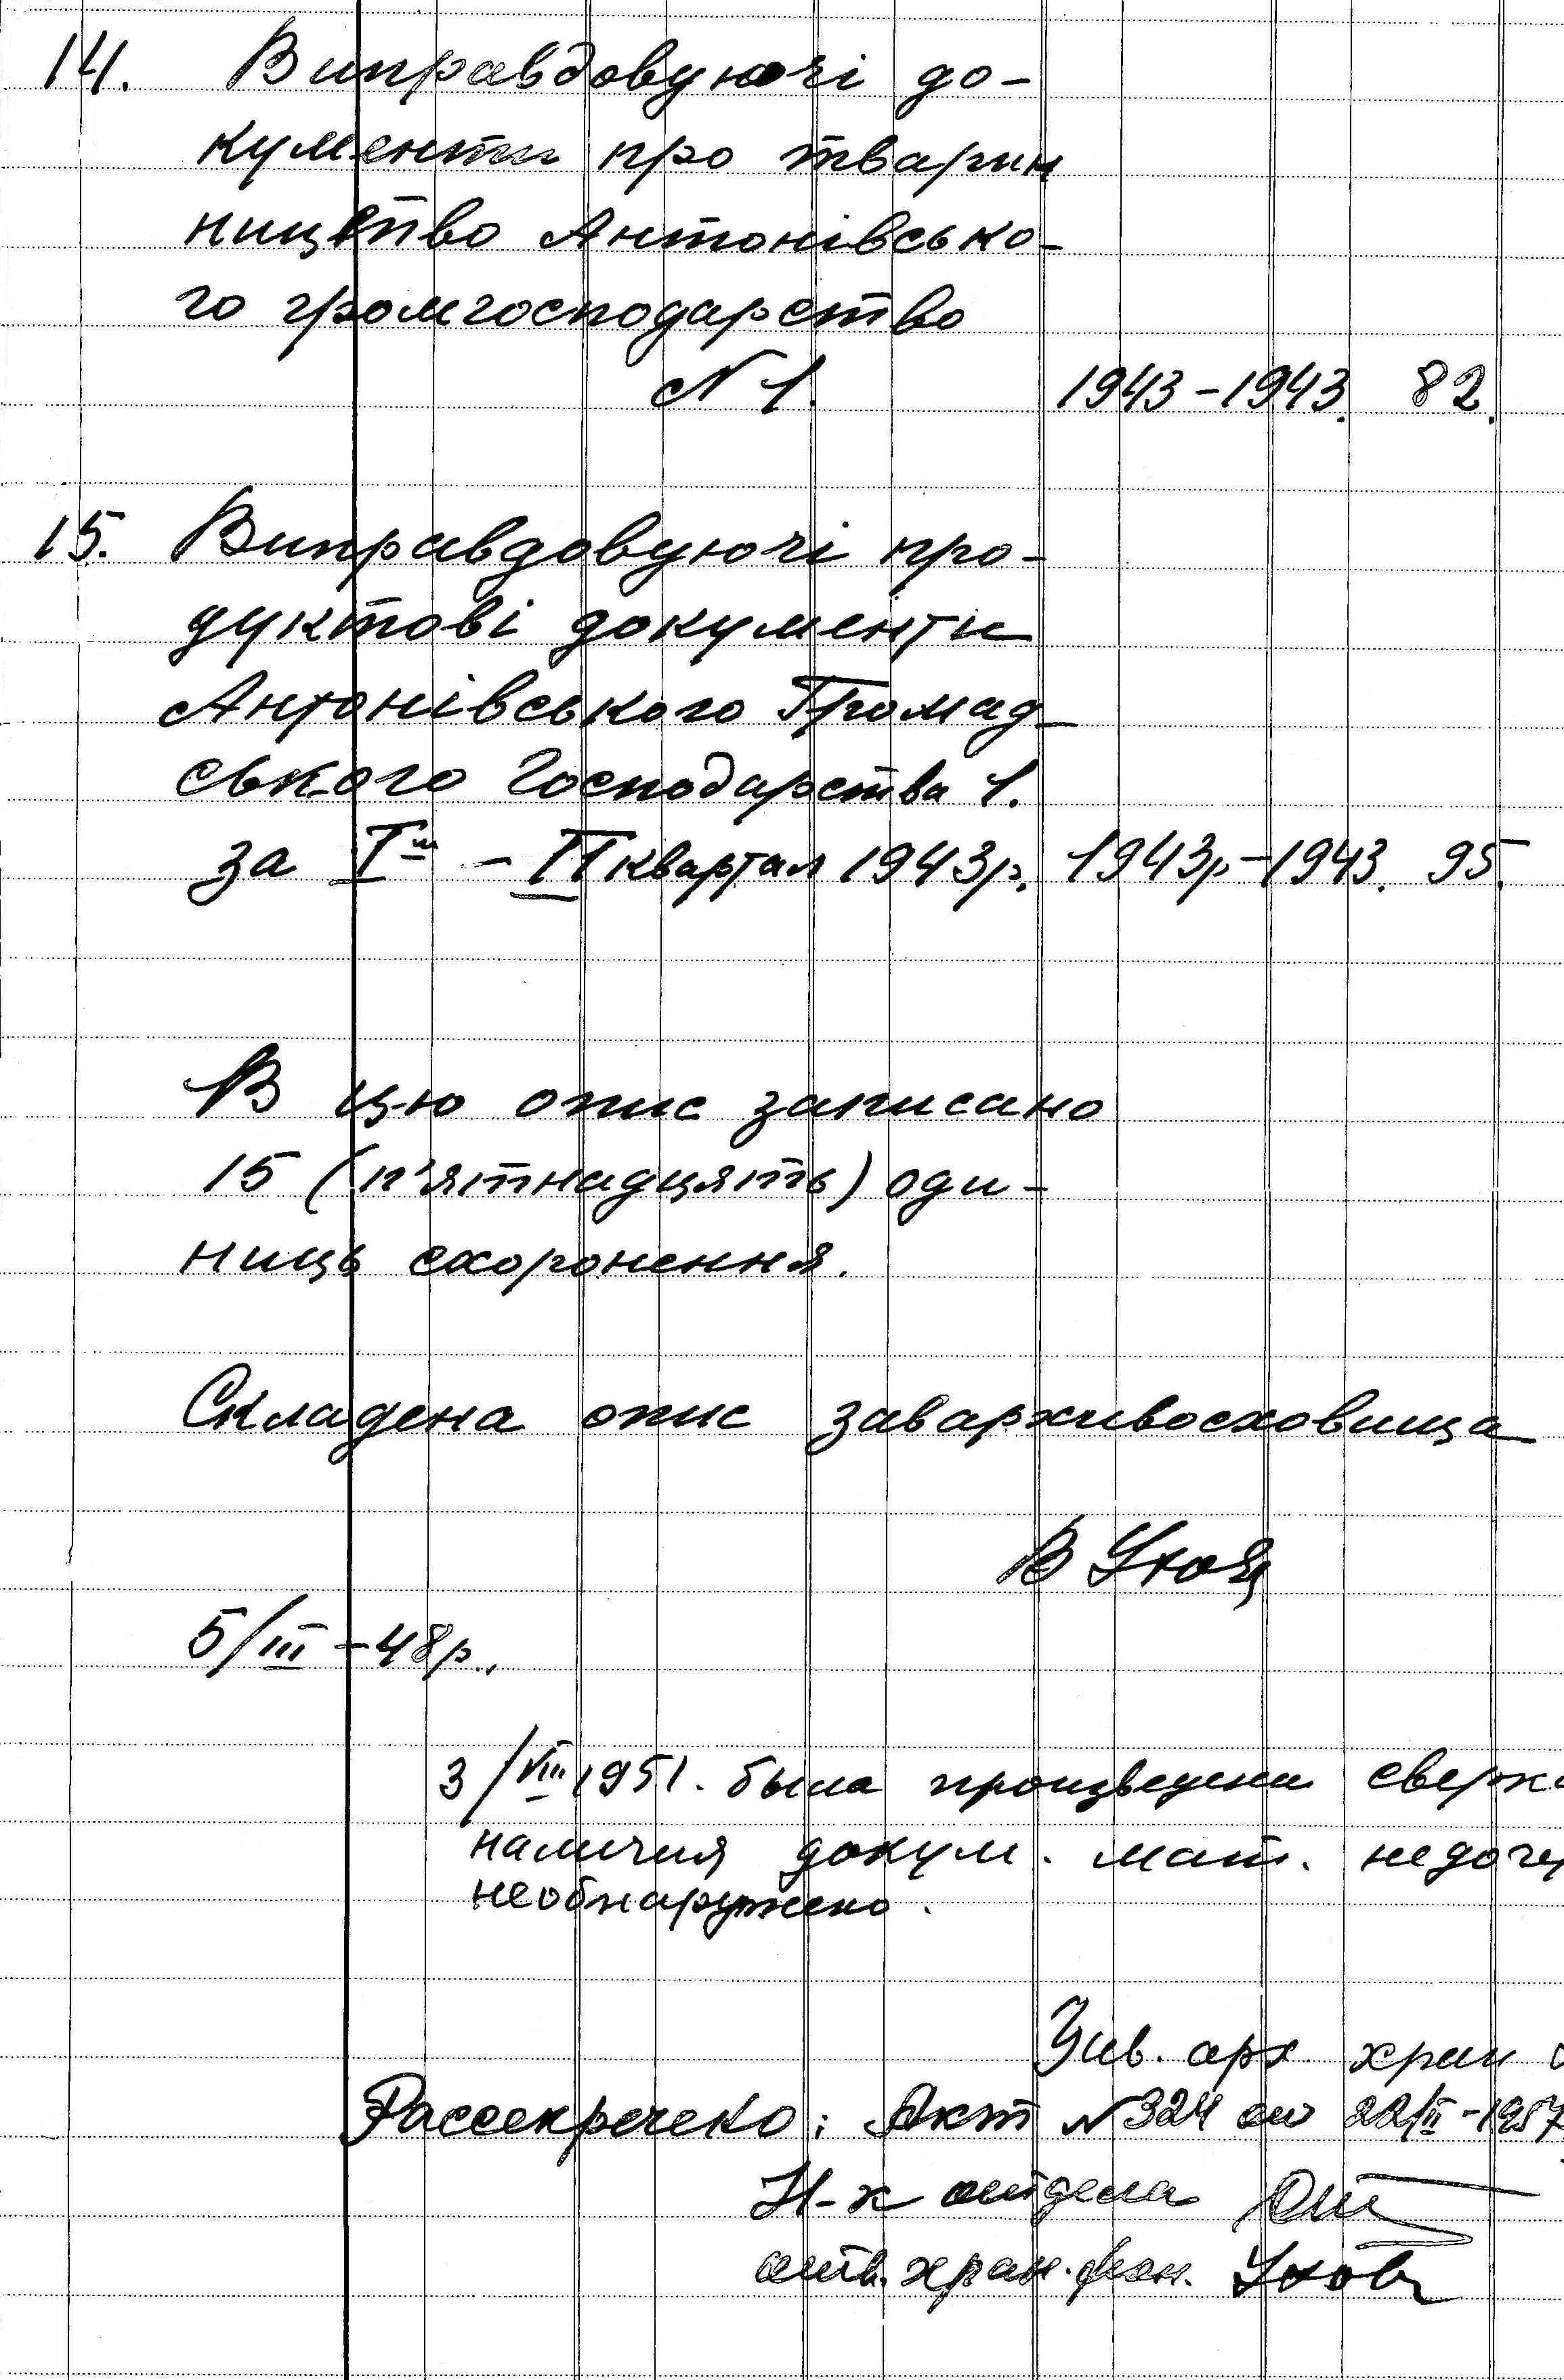 14. Виправдовуючі до-
кументи про тварин
ництво Антонівсько-
го громгосподарство
N 1. 1943-1943. 82.
15. Виправдовуючі про-
дуктові документи
Антонівського Громад-
ського Господарства 1.
за Iш - II квартал 1943р. 1943р-1943. 95.
В цю опис записано
15 (п'ятнадцять) оди-
ниць схоронення.
Складена опис завархивосховища
В
5/III-48р.,
3/VIII 1951. была произведена сверка
наличия докум. мат. недочет
необнаружено.
Зав. арх. хран
Рассекречено: Акт N 324 от 22/III-1957
Н-к отдела
отв. хран. фон.